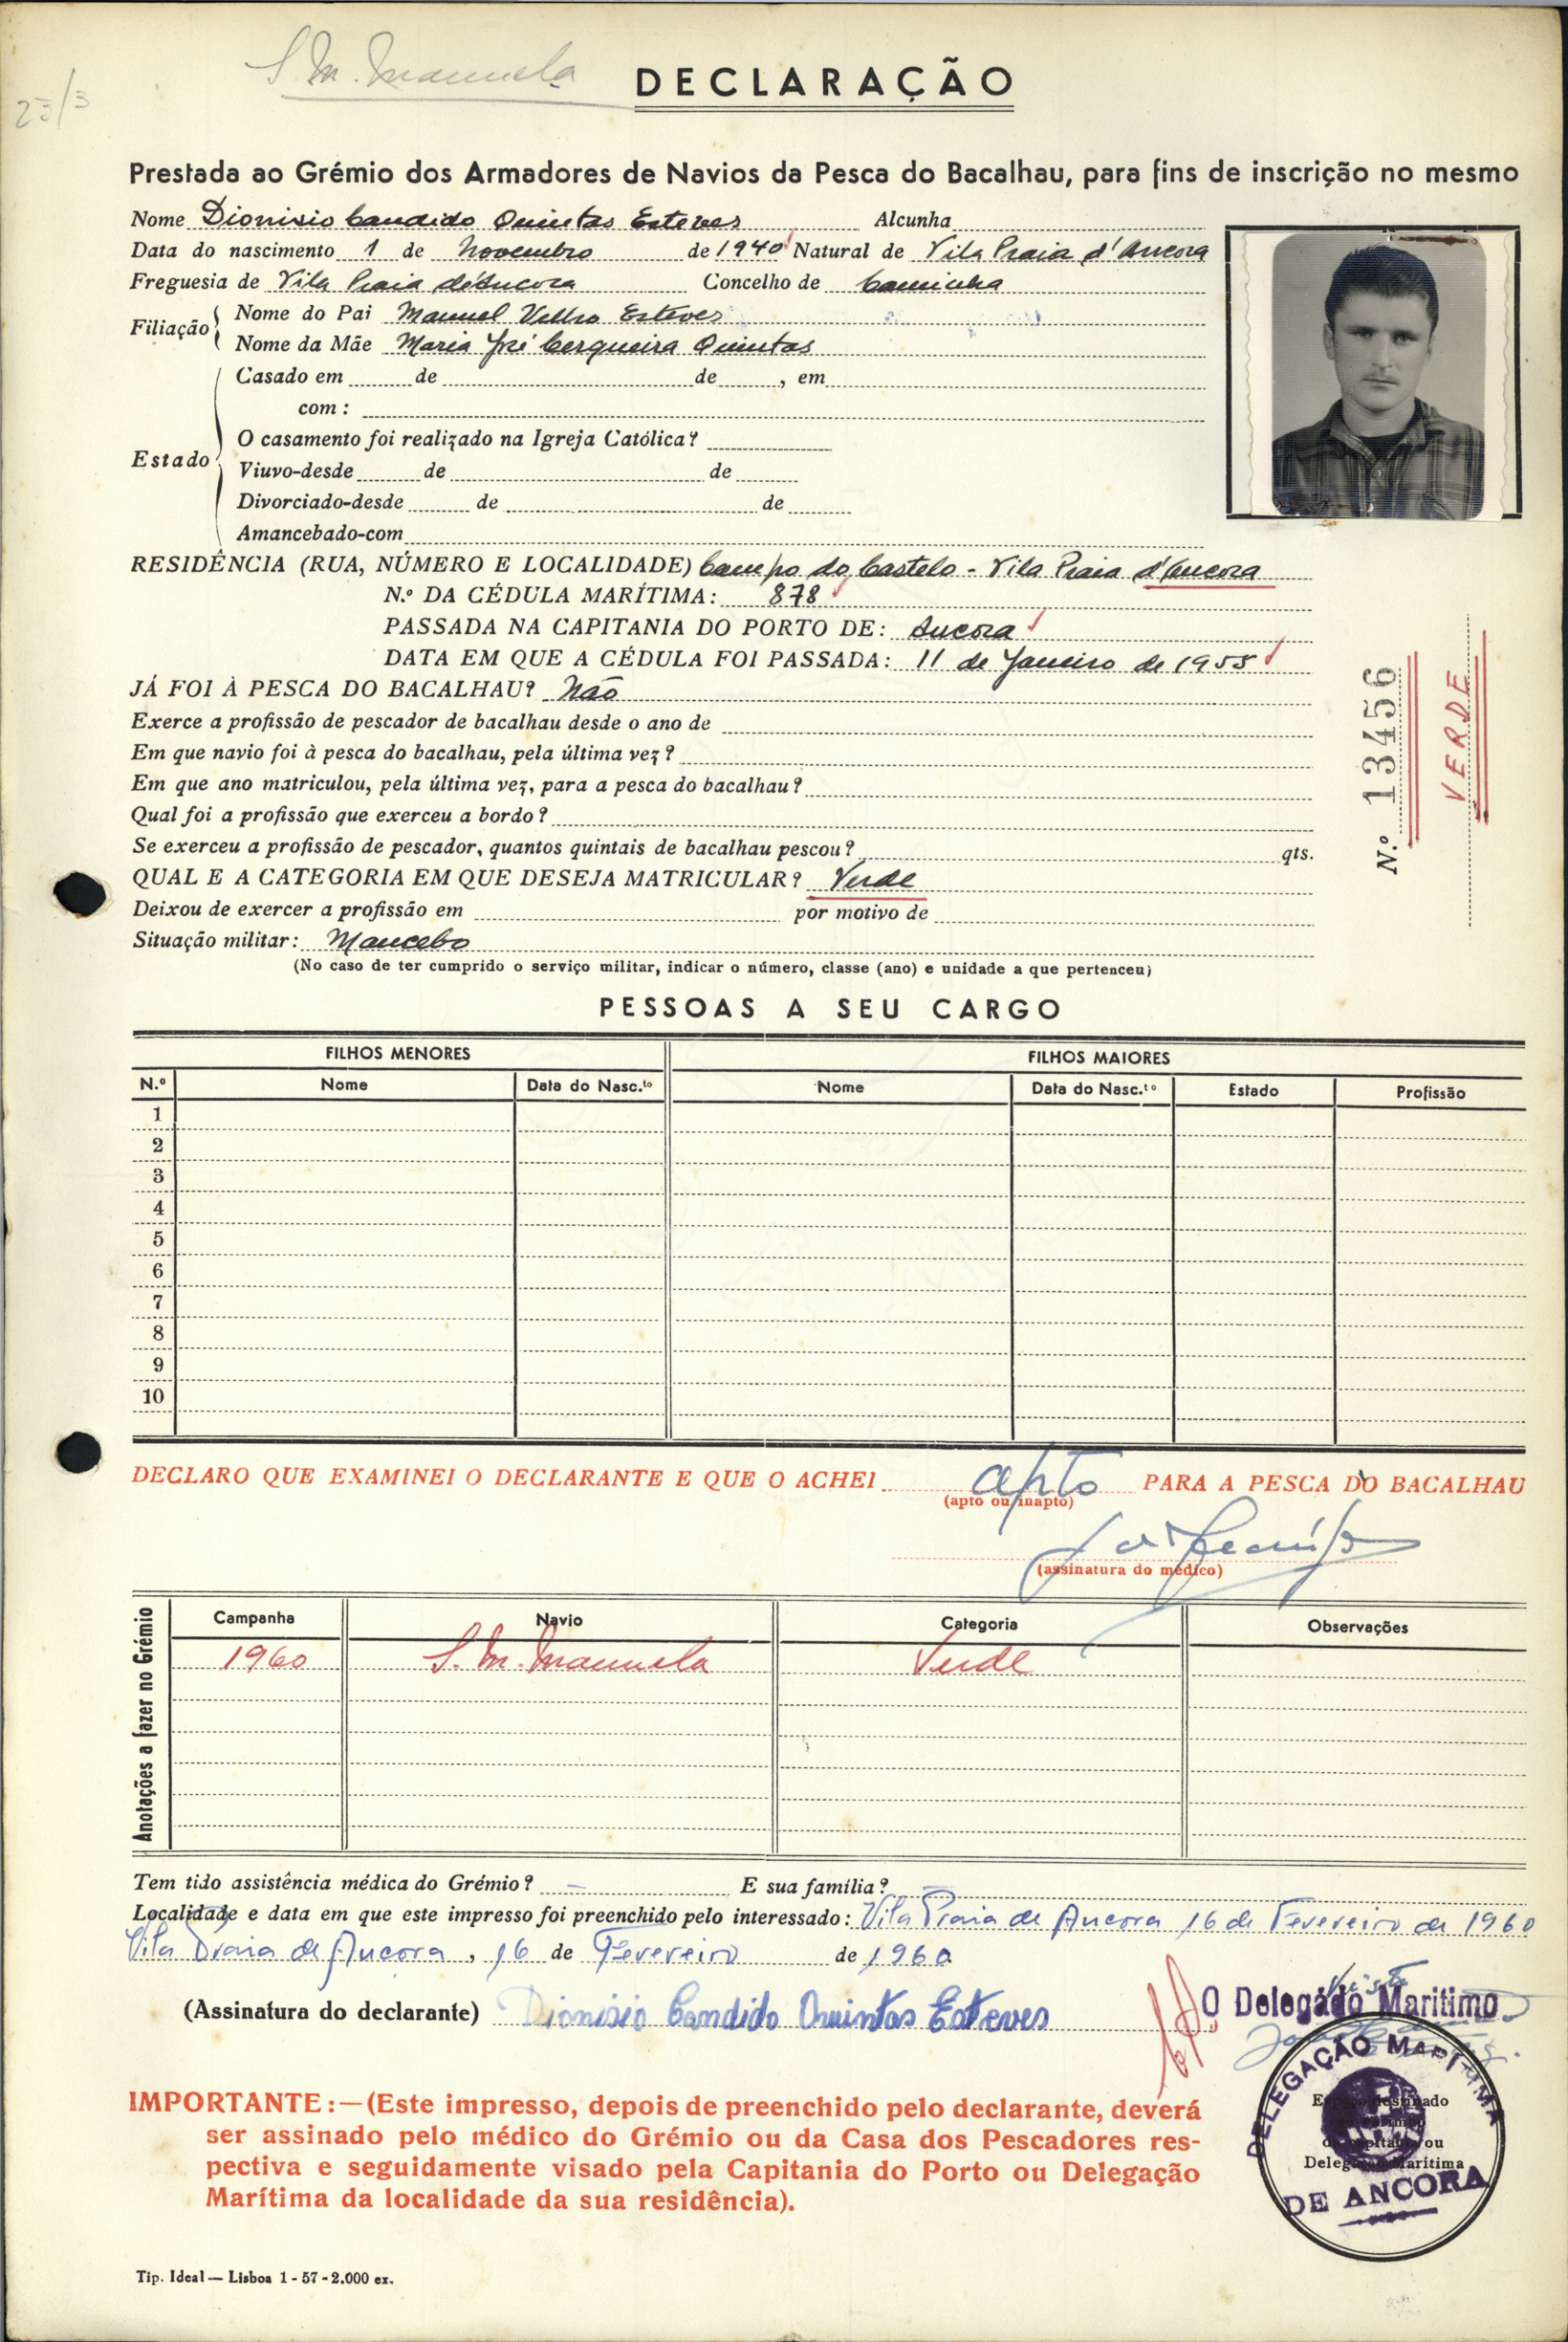 S. M. Manuela
DECLARAÇÃO
Prestada ao Grémio dos Armadores de Navios da Pesca do Bacalhau, para fins de inscrição no mesmo
Nome Dionisio Candido Quintas Esteves Alcunha
Data do nascimento 1 de Novembro de 1940 Natural de Vila Praia d'Ancora
Freguesia de Vila Praia d'Ancora Concelho de Caminha
Filiação
Nome do Pai Manuel Velho Esteves
Nome da Mãe Maria José Cerqueira Quintas
Estado
Casado em de de , em
com :
O casamento foi realizado na Igreja Católica?
Viuvo-desde de de
Divorciado-desde de de
Amancebado-com
RESIDÊNCIA (RUA, NÚMERO E LOCALIDADE) Campo do Castelo - Vila Praia d'Ancora
N.º DA CÉDULA MARÍTIMA: 878
PASSADA NA CAPITANIA DO PORTO DE: Ancora
DATA EM QUE A CÉDULA FOI PASSADA: 11 de Janeiro de 1955
JÁ FOI À PESCA DO BACALHAU? Não
Exerce a profissão de pescador de bacalhau desde o ano de
Em que navio foi à pesca do bacalhau, pela última vez?
Em que ano matriculou, pela última vez, para a pesca do bacalhau?
Qual foi a profissão que exerceu a bordo?
Se exerceu a profissão de pescador, quantos quintais de bacalhau pescou? qts.
QUAL E A CATEGORIA EM QUE DESEJA MATRICULAR? Verde
Deixou de exercer a profissão em por motivo de
Situação militar: Mancebo
(No caso de ter cumprido o serviço militar, indicar o número, classe (ano) e unidade a que pertenceu)
N.º 13456
VERDE
PESSOAS A SEU CARGO
FILHOS MENORES FILHOS MAIORES
N.º Nome Data do Nasc.to Nome Data do Nasc.to Estado Profissão
1
2
3
4
5
6
7
8
9
10
DECLARO QUE EXAMINEI O DECLARANTE E QUE O ACHEI apto PARA A PESCA DO BACALHAU
(apto ou inapto)
(assinatura do médico)
Anotações a fazer no Grémio
Campanha Navio Categoria Observações
1960 S. M. Manuela Verde
Tem tido assistência médica do Grémio? – E sua família? –
Localidade e data em que este impresso foi preenchido pelo interessado: Vila Praia de Ancora 16 de Fevereiro de 1960
Vila Praia de Ancora, 16 de Fevereiro de 1960
(Assinatura do declarante) Dionisio Candido Quintas Esteves
Visto
O Delegado Maritimo
DELEGAÇÃO MARÍTIMA
DE ANCORA
Espaço destinado
ou
Delegação Marítima
IMPORTANTE :—(Este impresso, depois de preenchido pelo declarante, deverá
ser assinado pelo médico do Grémio ou da Casa dos Pescadores res-
pectiva e seguidamente visado pela Capitania do Porto ou Delegação
Marítima da localidade da sua residência).
Tip. Ideal — Lisboa 1 - 57 - 2.000 ex.